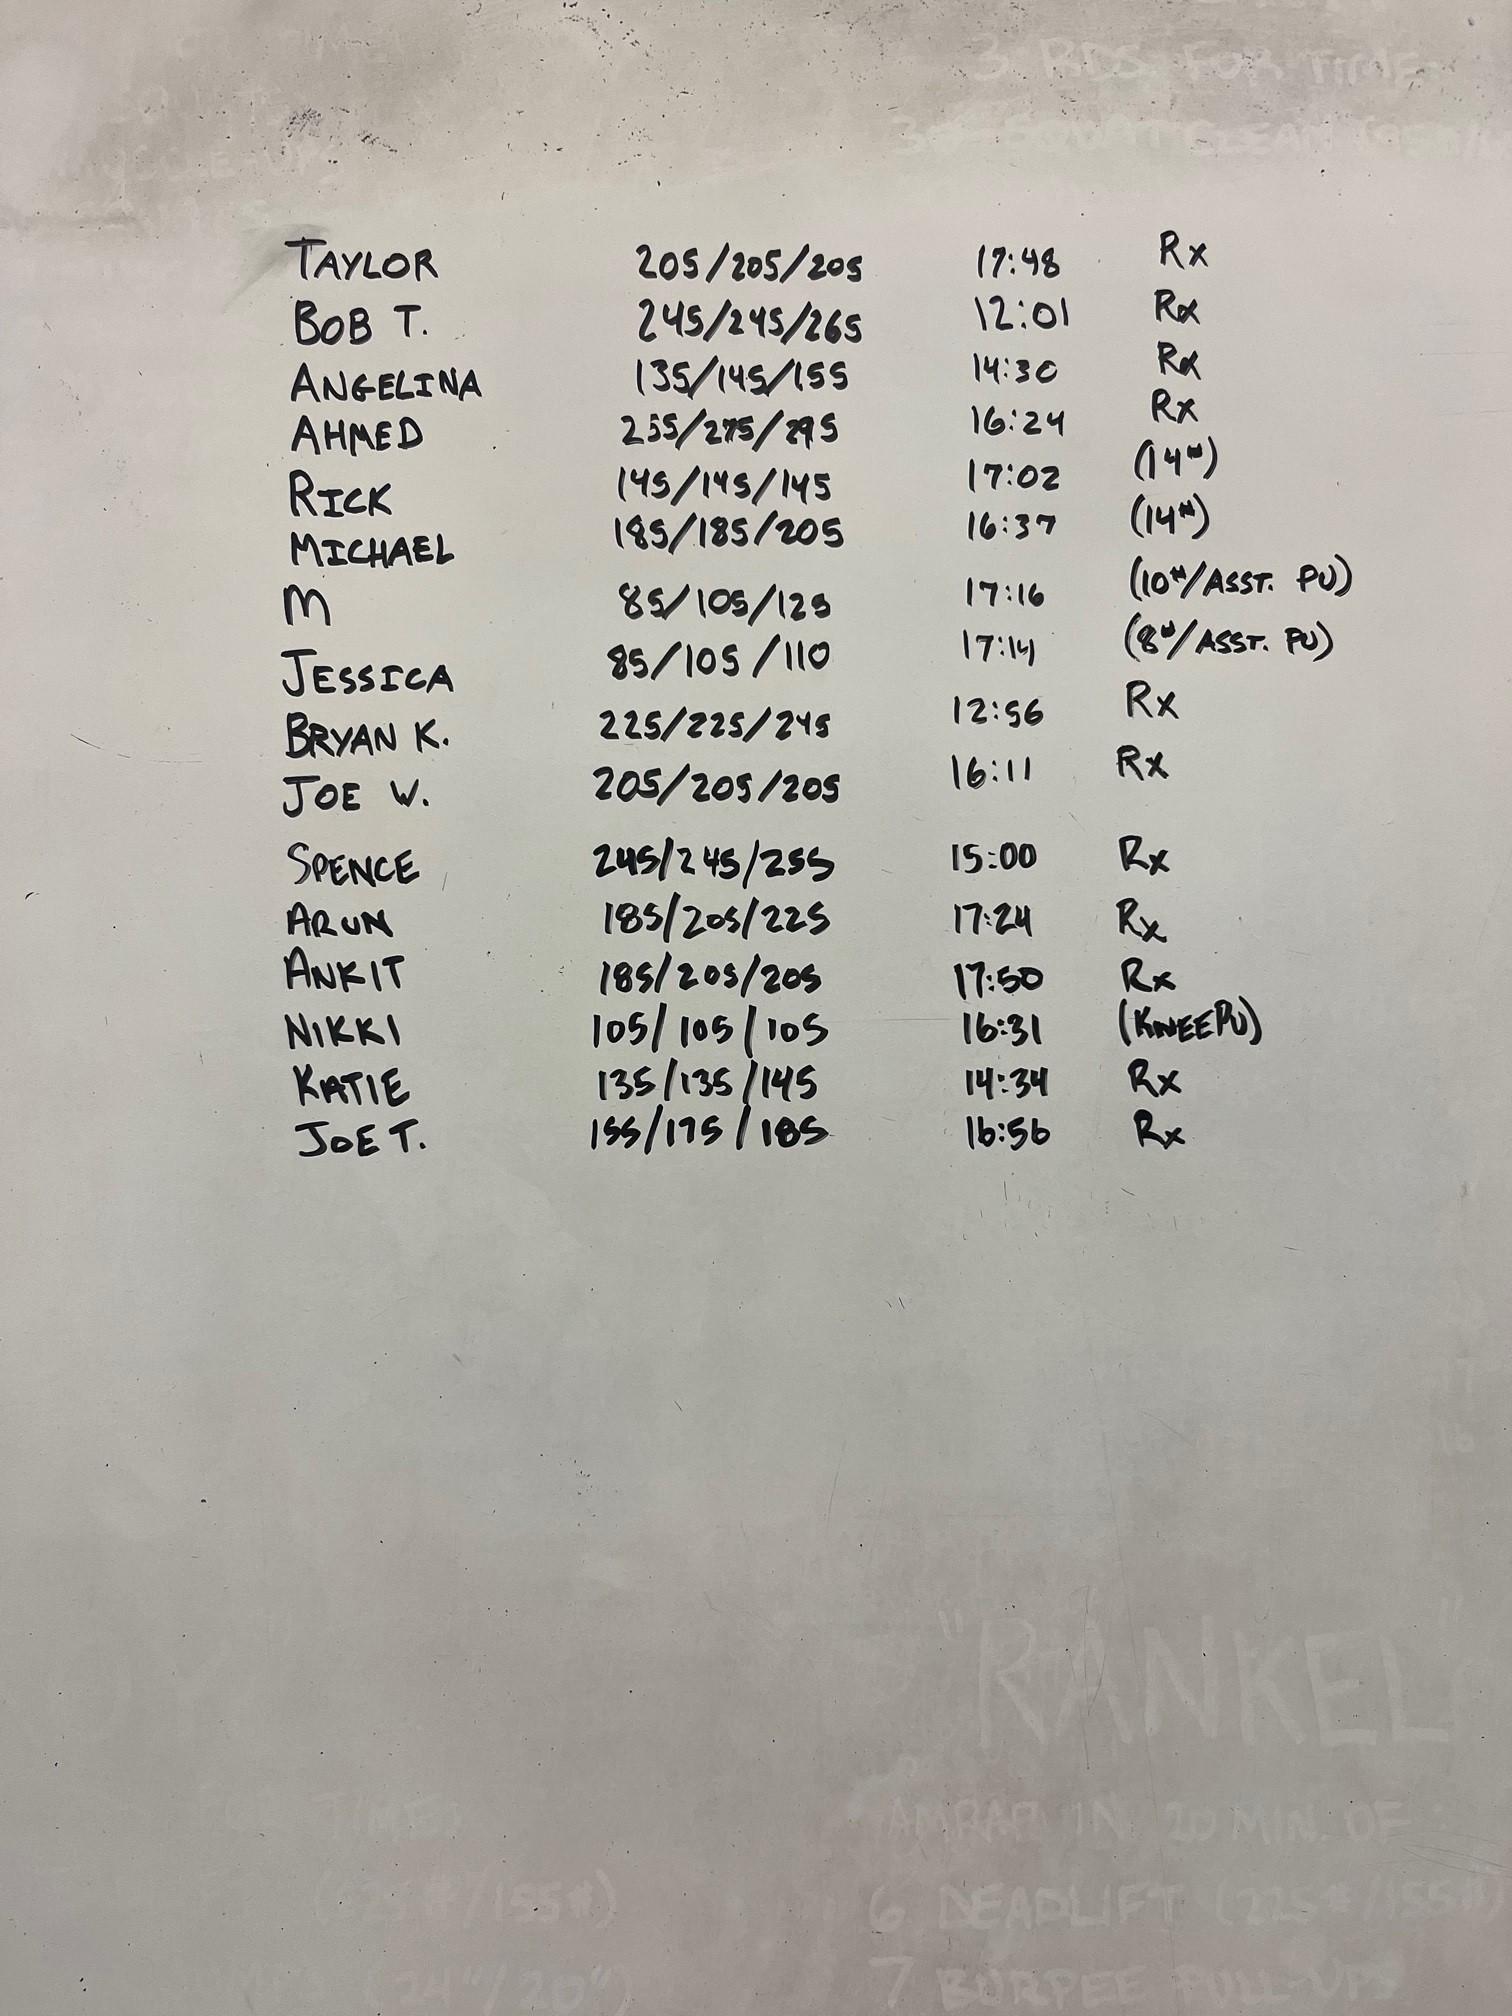 3 RDS FOR TIME
TAYLOR 205/205/205 17:48 Rx
BOB T. 245/245/265 12:01 Rx
ANGELINA 135/145/155 14:30 Rx
AHMED 255/275/295 16:24 Rx
RICK 145/145/145 17:02 (14#)
MICHAEL 185/185/205 16:37 (14#)
M 85/105/125 17:16 (10#/ASST. PU)
JESSICA 85/105/110 17:14 (8#/ASST. PU)
BRYAN K. 225/225/245 12:56 Rx
JOE W. 205/205/205 16:11 Rx
SPENCE 245/245/255 15:00 Rx
ARUN 185/205/225 17:24 Rx
ANKIT 185/205/205 17:50 Rx
NIKKI 105/105/105 16:31 (KNEE PU)
KATIE 135/135/145 14:34 Rx
JOE T. 155/175/185 16:56 Rx
"RANKEL"
FOR TIME: AMRAP IN 20 MIN. OF:
(225#/155#) 6 DEADLIFT (225#/155#)
(24"/20") 7 BURPEE PULL-UPS